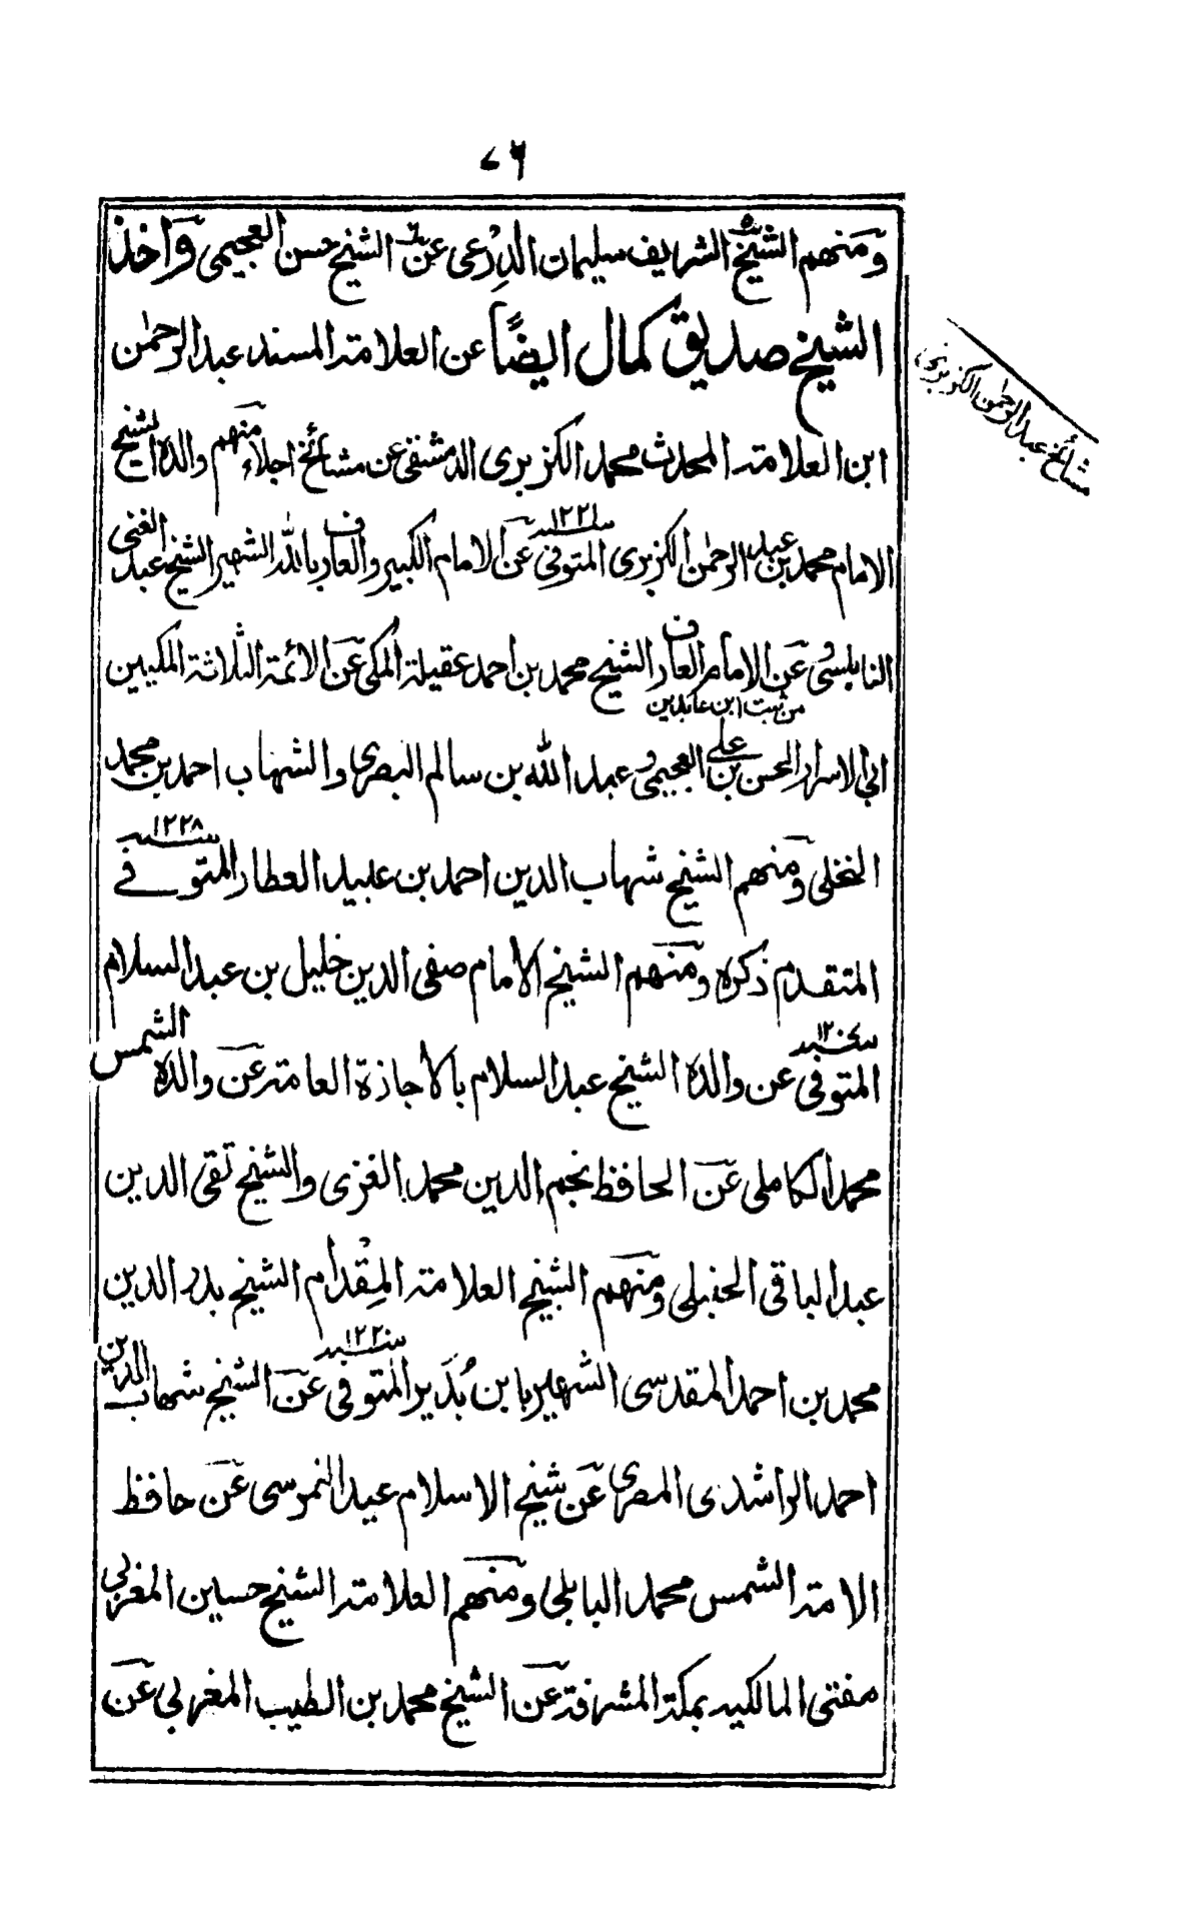 ٧٦
ومنهم الشيخ الشريف سليمان الدرعى عن الشيخ حسن العجيمى وَاخذ
الشيخ صديق كمال ايضًا عن العلامة المسند عبد الرحمٰن
مشائخ عبد الرحمٰن الكزبرى
ابن العلامة المحدث محمد الكزبرى الدمشقى عن مشائخ اجلاء منهم والده الشيخ
الامام محمد بن عبد الرحمٰن الكزبرى المتوفى سنة ١٢٢١ عن الامام الكبير والعارف بالله الشهير الشيخ عبد الغنى
النابلسى عن الامام العارف الشيخ محمد بن احمد عقيلة المكى عن الائمة الثلاثة المكيين
من ثبت ابن عابدين
ابى الاسرار الحسن بن على العجيمى وعبد الله بن سالم البصرى والشهاب احمد بن محمد
النخلى ومنهم الشيخ شهاب الدين احمد بن عبيد العطار المتوفى سنة ١٢٢٨
المتقدم ذكره ومنهم الشيخ الامام صفى الدين خليل بن عبد السلام
المتوفى سنة ١٢٠٧ عن والده الشيخ عبد السلام بالاجازة العامة عن والده الشمس
محمد الكاملى عن الحافظ نجم الدين محمد الغزى والشيخ تقى الدين
عبد الباقى الحنبلى ومنهم الشيخ العلامة المِقْدام الشيخ بدر الدين
محمد بن احمد المقدسى الشهير بابن بُدَير المتوفى سنة ١٢٢٠ عن الشيخ شهاب الدين
احمد الراشدى المصرى عن شيخ الاسلام عيد النمرسى عن حافظ
الامة الشمس محمد البابلى ومنهم العلامة الشيخ حسين المغربى
مفتى المالكيه بمكة المشرفة عن الشيخ محمد بن الطيب المغربى عن